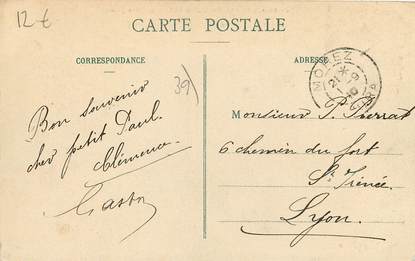 12 €
CARTE POSTALE
CORRESPONDANCE
ADRESSE
39)
MOREZ
JURA
21 - 9
10
Bon souvenir
cher petit Paul.
Clémence
Gaston
Monsieur P. Pierrat
6 chemin du fort
St Irénée
Lyon.